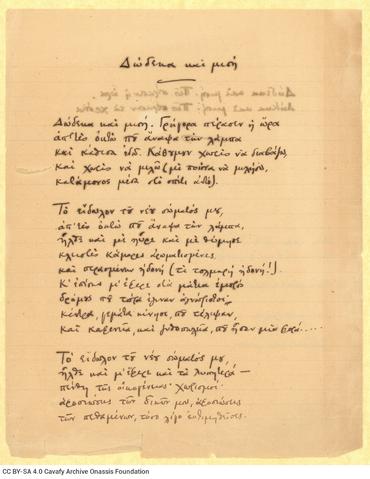 Δώδεκα και μισή
Δώδεκα και μιση. Γρήγορα πέρασεν η ώρα
απ' τες οκτώ που άναψα την λάμπα
και κάθισα εδώ. Κάθομουν χωρίς να διαβάζω,
και χωρίς να μιλώ (με ποιόνα να μιλήσω,
κατάμονος μέσα στο σπίτι αυτό).
Το είδωλον του νέου σώματός μου,
απ' τες οκτώ που άναψα την λάμπα,
ήλθε και με ηύρε και με θύμησε
κλειστές κάμαρες αρωματισμένες,
και περασμένην ηδονή (τι τολμηρή ηδονή!).
Κ' επίσης μ' έφερε στα μάτια εμπρός
δρόμους που τώρα έγιναν αγνώριστοι,
κέντρα γεμάτα κίνησι που τέλεψαν,
και καφενεία, και που ήσαν μια φορά.....
Το είδωλον του νέου σώματός μου,
ήλθε και μ' έφερε και τα λυπητερά —
πένθη της οικογένειας χωρισμοί·
αισθήματα δικών μου, αισθήματα
των πεθαμένων, τόσο λίγο εκτιμηθέντα.
CC BY-SA 4.0 Cavafy Archive Onassis Foundation